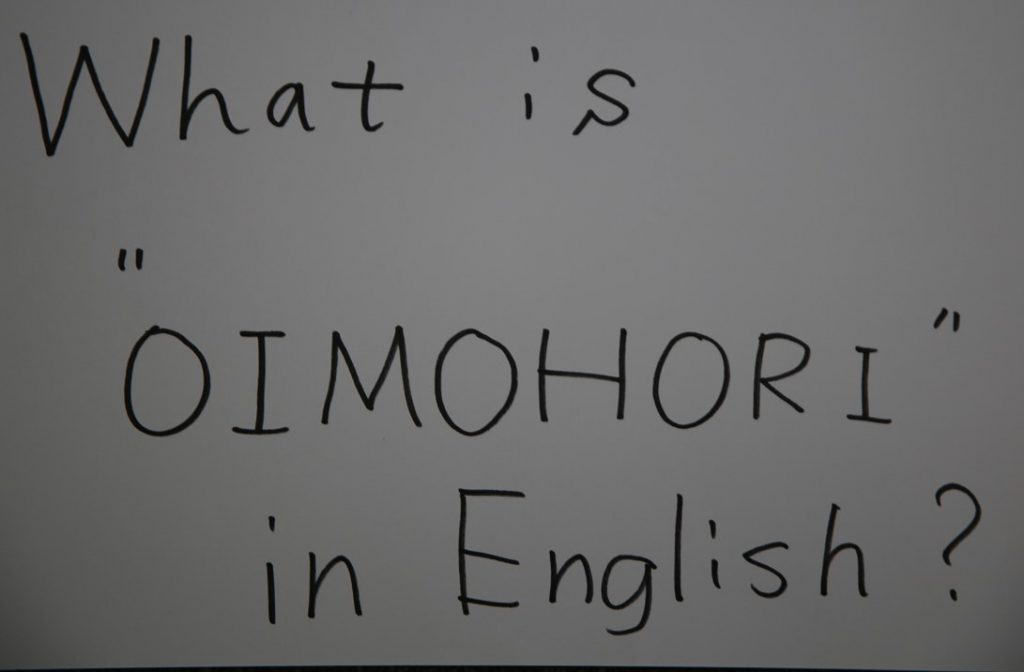 What is
"OIMOHORI"
in English?